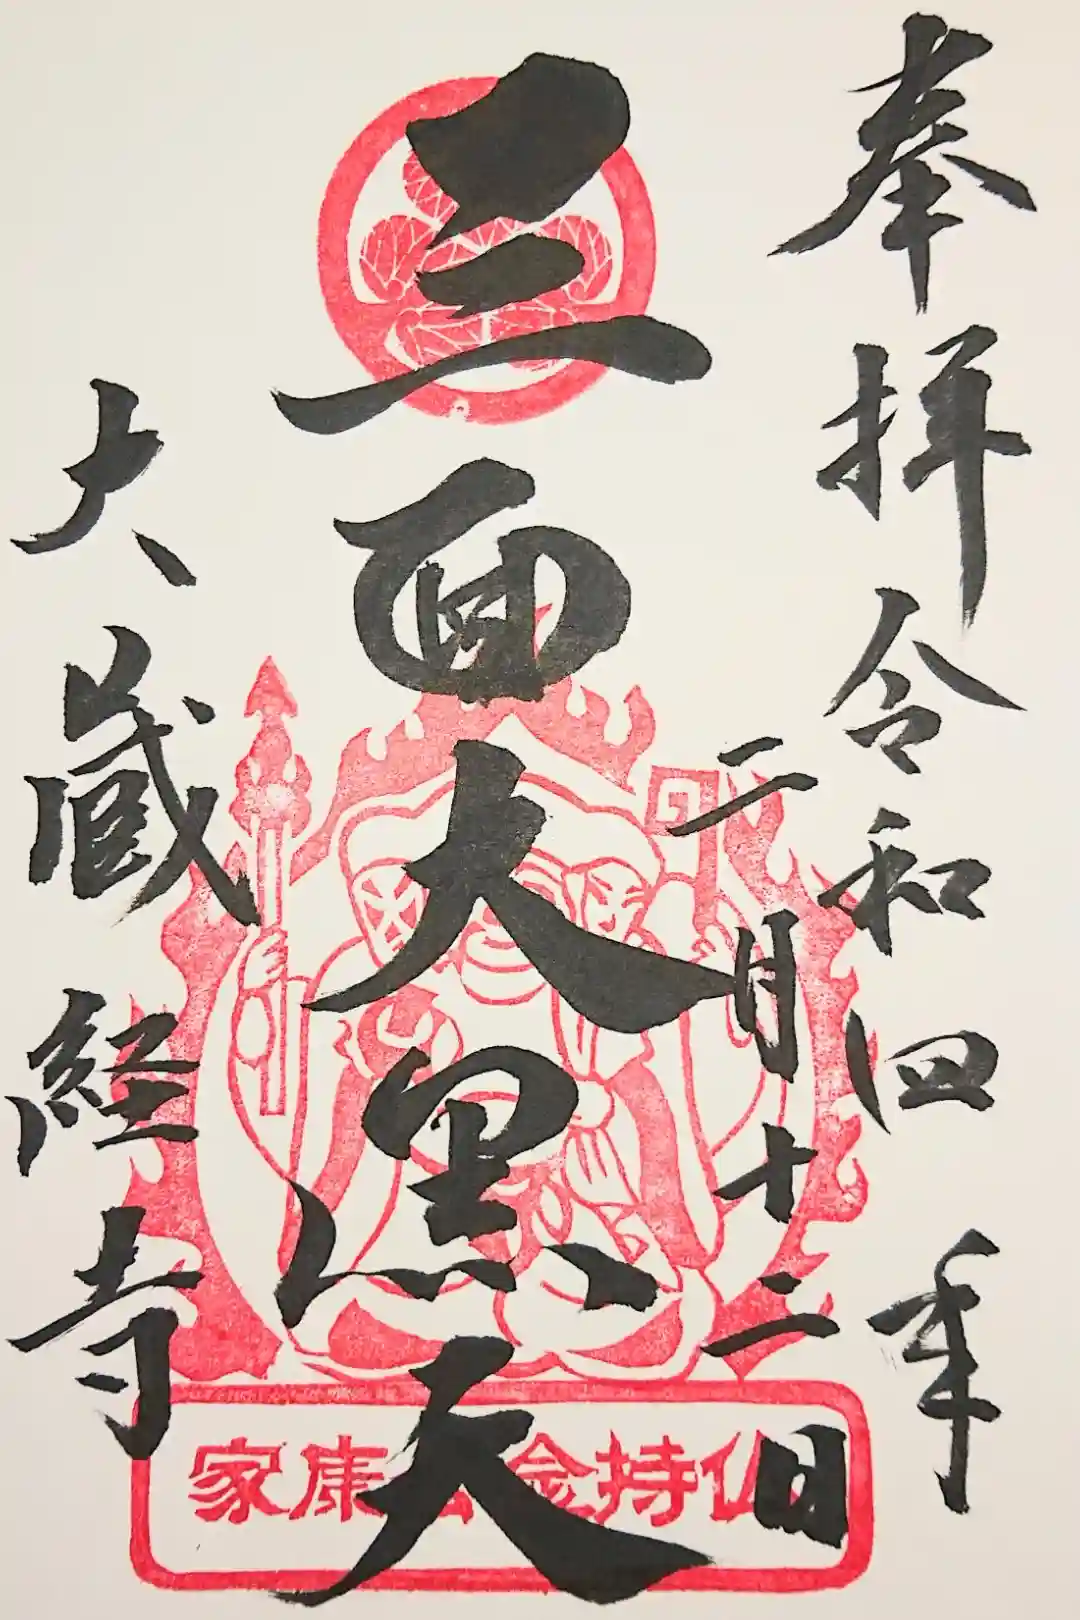 奉拝 令和四年
二月十二日
三面大黒天
大蔵経寺
家康公念持仏